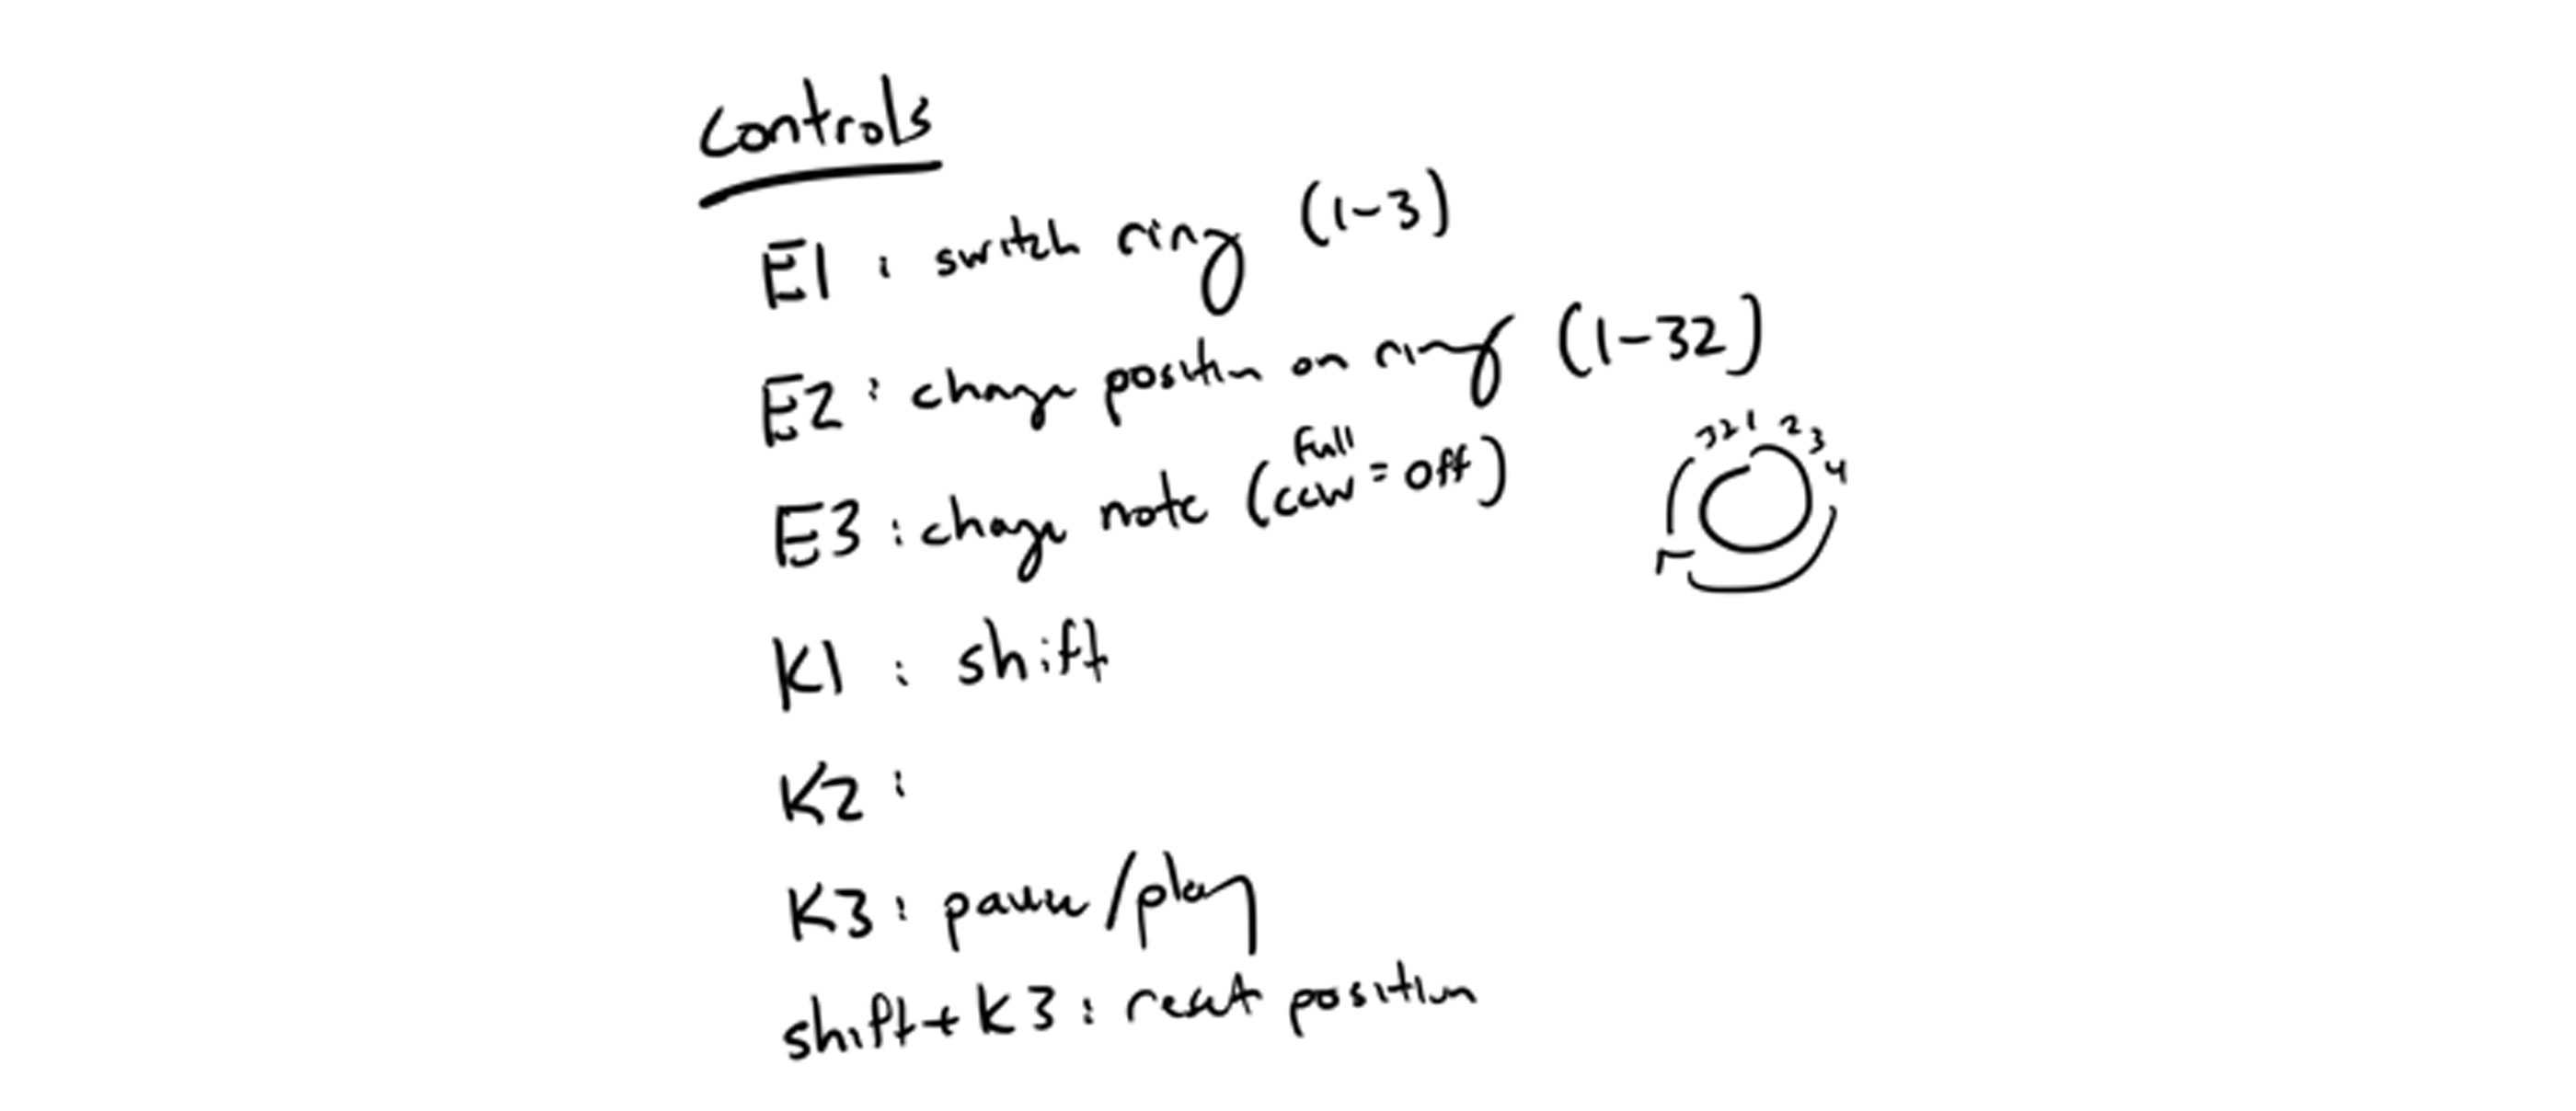 controls
E1 : switch ring (1-3)
E2 : change position on ring (1-32)
32 1 2 3 4
E3 : change note (full ccw = off)
K1 : shift
K2 :
K3 : pause/play
shift + K3 : reset position